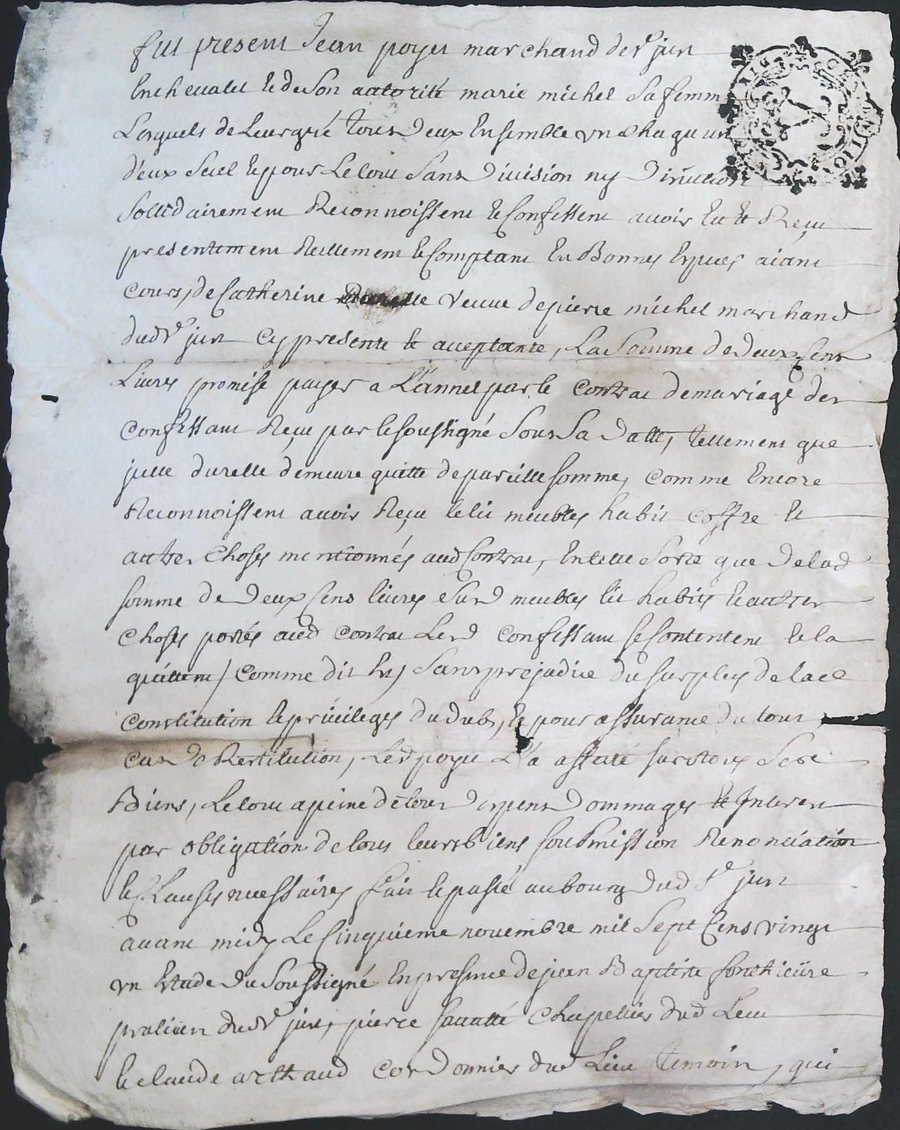 fut present Jean poyet marchand de st just
en chevalet et de son autorité marie michel sa femme
Lesquels de leur gré tous deux ensemble un chaqu'un
d'eux seul et pour le tout sans division ny
solidairement Reconnoissent et Confessent avoir eu et Reçu
presentement Reellement et Comptant en Bonnes especes aiant
cours, de Catherine veuve de pierre michel marchand
dud st just cy presente et acceptante, La Somme de deux cens
Livres promise payer a L'année par le contrat de mariage des
confessant Reçu par le soussigné sous sa datte, tellement que
durelle demeure quitte de pareille somme, comme Encore
Reconnoissent avoir Reçu le lit meubles habis coffre et
autres choses mentionnés aud Contrat, en telle sorte que de lad
somme de deux cens livres et sur d meubles lit habis et autres
choses portés aud contrat Lesd confessant se contentent et la
quittent comme dit est sans prejudice du surplus de lad
constitution et privileges du dub, et pour assurance du tout
cas de Restitution, Led poyet L'a assuré sur tous ses
Biens, Le tout a peine de tous depens dommages et Interest
par obligation de tous leurs biens soubmission Renonciation
et Clauses necessaires fait et passé au bourg dud st just
avant midy Le Cinquieme novembre mil sept cens vingt
un Etude du Soussigné En presence de jean Baptiste
praticien dud st just, pierre chapellier dud Lieu
et claude arthaud cordonnier dud Lieu temoin, qui